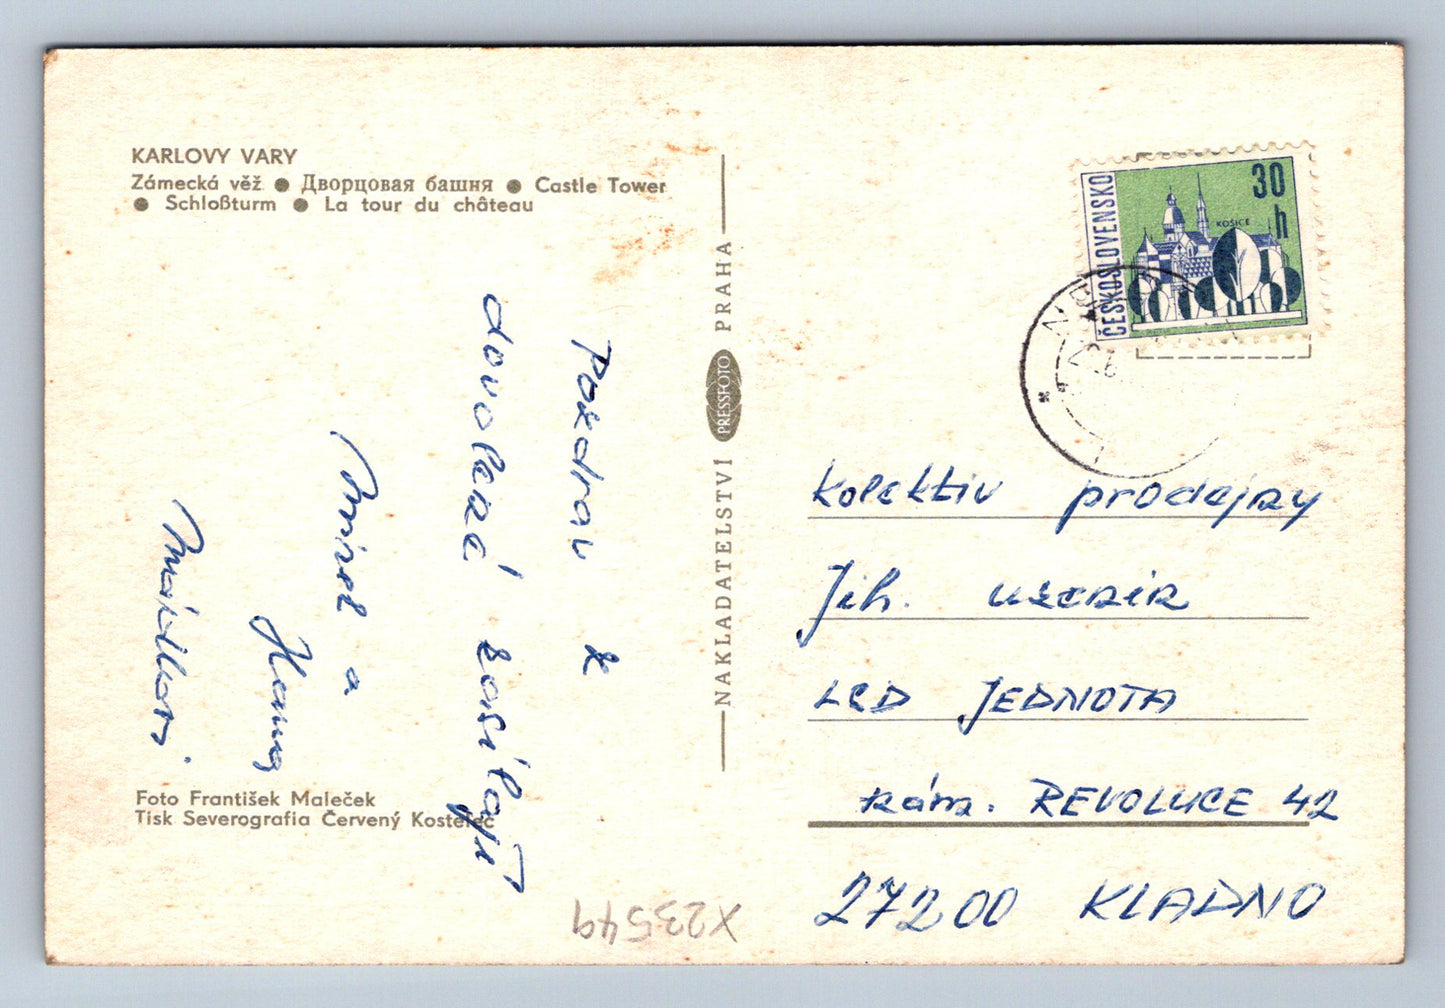 KARLOVY VARY
Zámecká věž ● Дворцовая башня ● Castle Tower
● Schloßturm ● La tour du château
Pozdrav z
dovolené zasílají
a
Hana
Foto František Maleček
Tisk Severografia Červený Kostelec
X23549
NAKLADATELSTVÍ PRESSFOTO PRAHA
ČESKOSLOVENSKO
30 h
KOŠICE
kolektiv prodejny
Jih. uzenin
LSD JEDNOTA
nám. REVOLUCE 42
27200 KLADNO